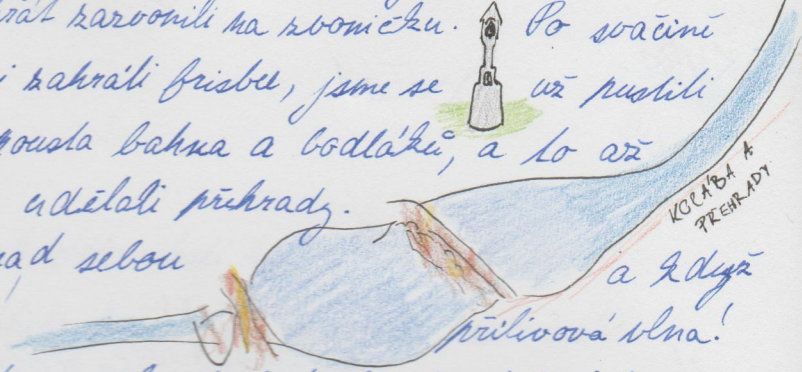 zazvonili na zvoničku. Po svačině
i zahráli frisbee, jsme se už pustili
spousta bahna a bodláků, a to až
udělali přehrady.
nad sebou a když
přílivová vlna!
KORÁBA A
PŘEHRADY